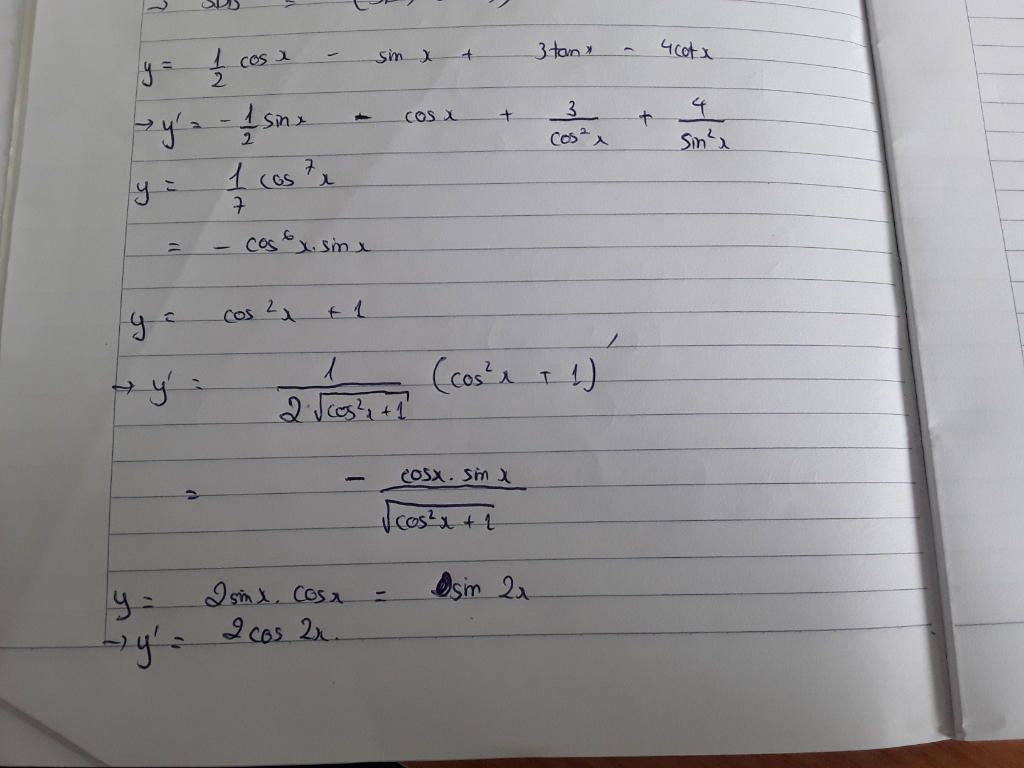 y = 1/2 cos x - sin x + 3tanx - 4cotx
→ y' = - 1/2 sinx - cosx + 3/cos²x + 4/sin²x
y = 1/7 cos⁷x
= - cos⁶x.sinx
y = cos²x + 1
→ y' = 1/(2.√(cos²x+1)) (cos²x + 1)'
= - (cosx. sin x)/√(cos²x + 1)
y = 2sinx. cosx = sin 2x
→ y' = 2cos 2x.